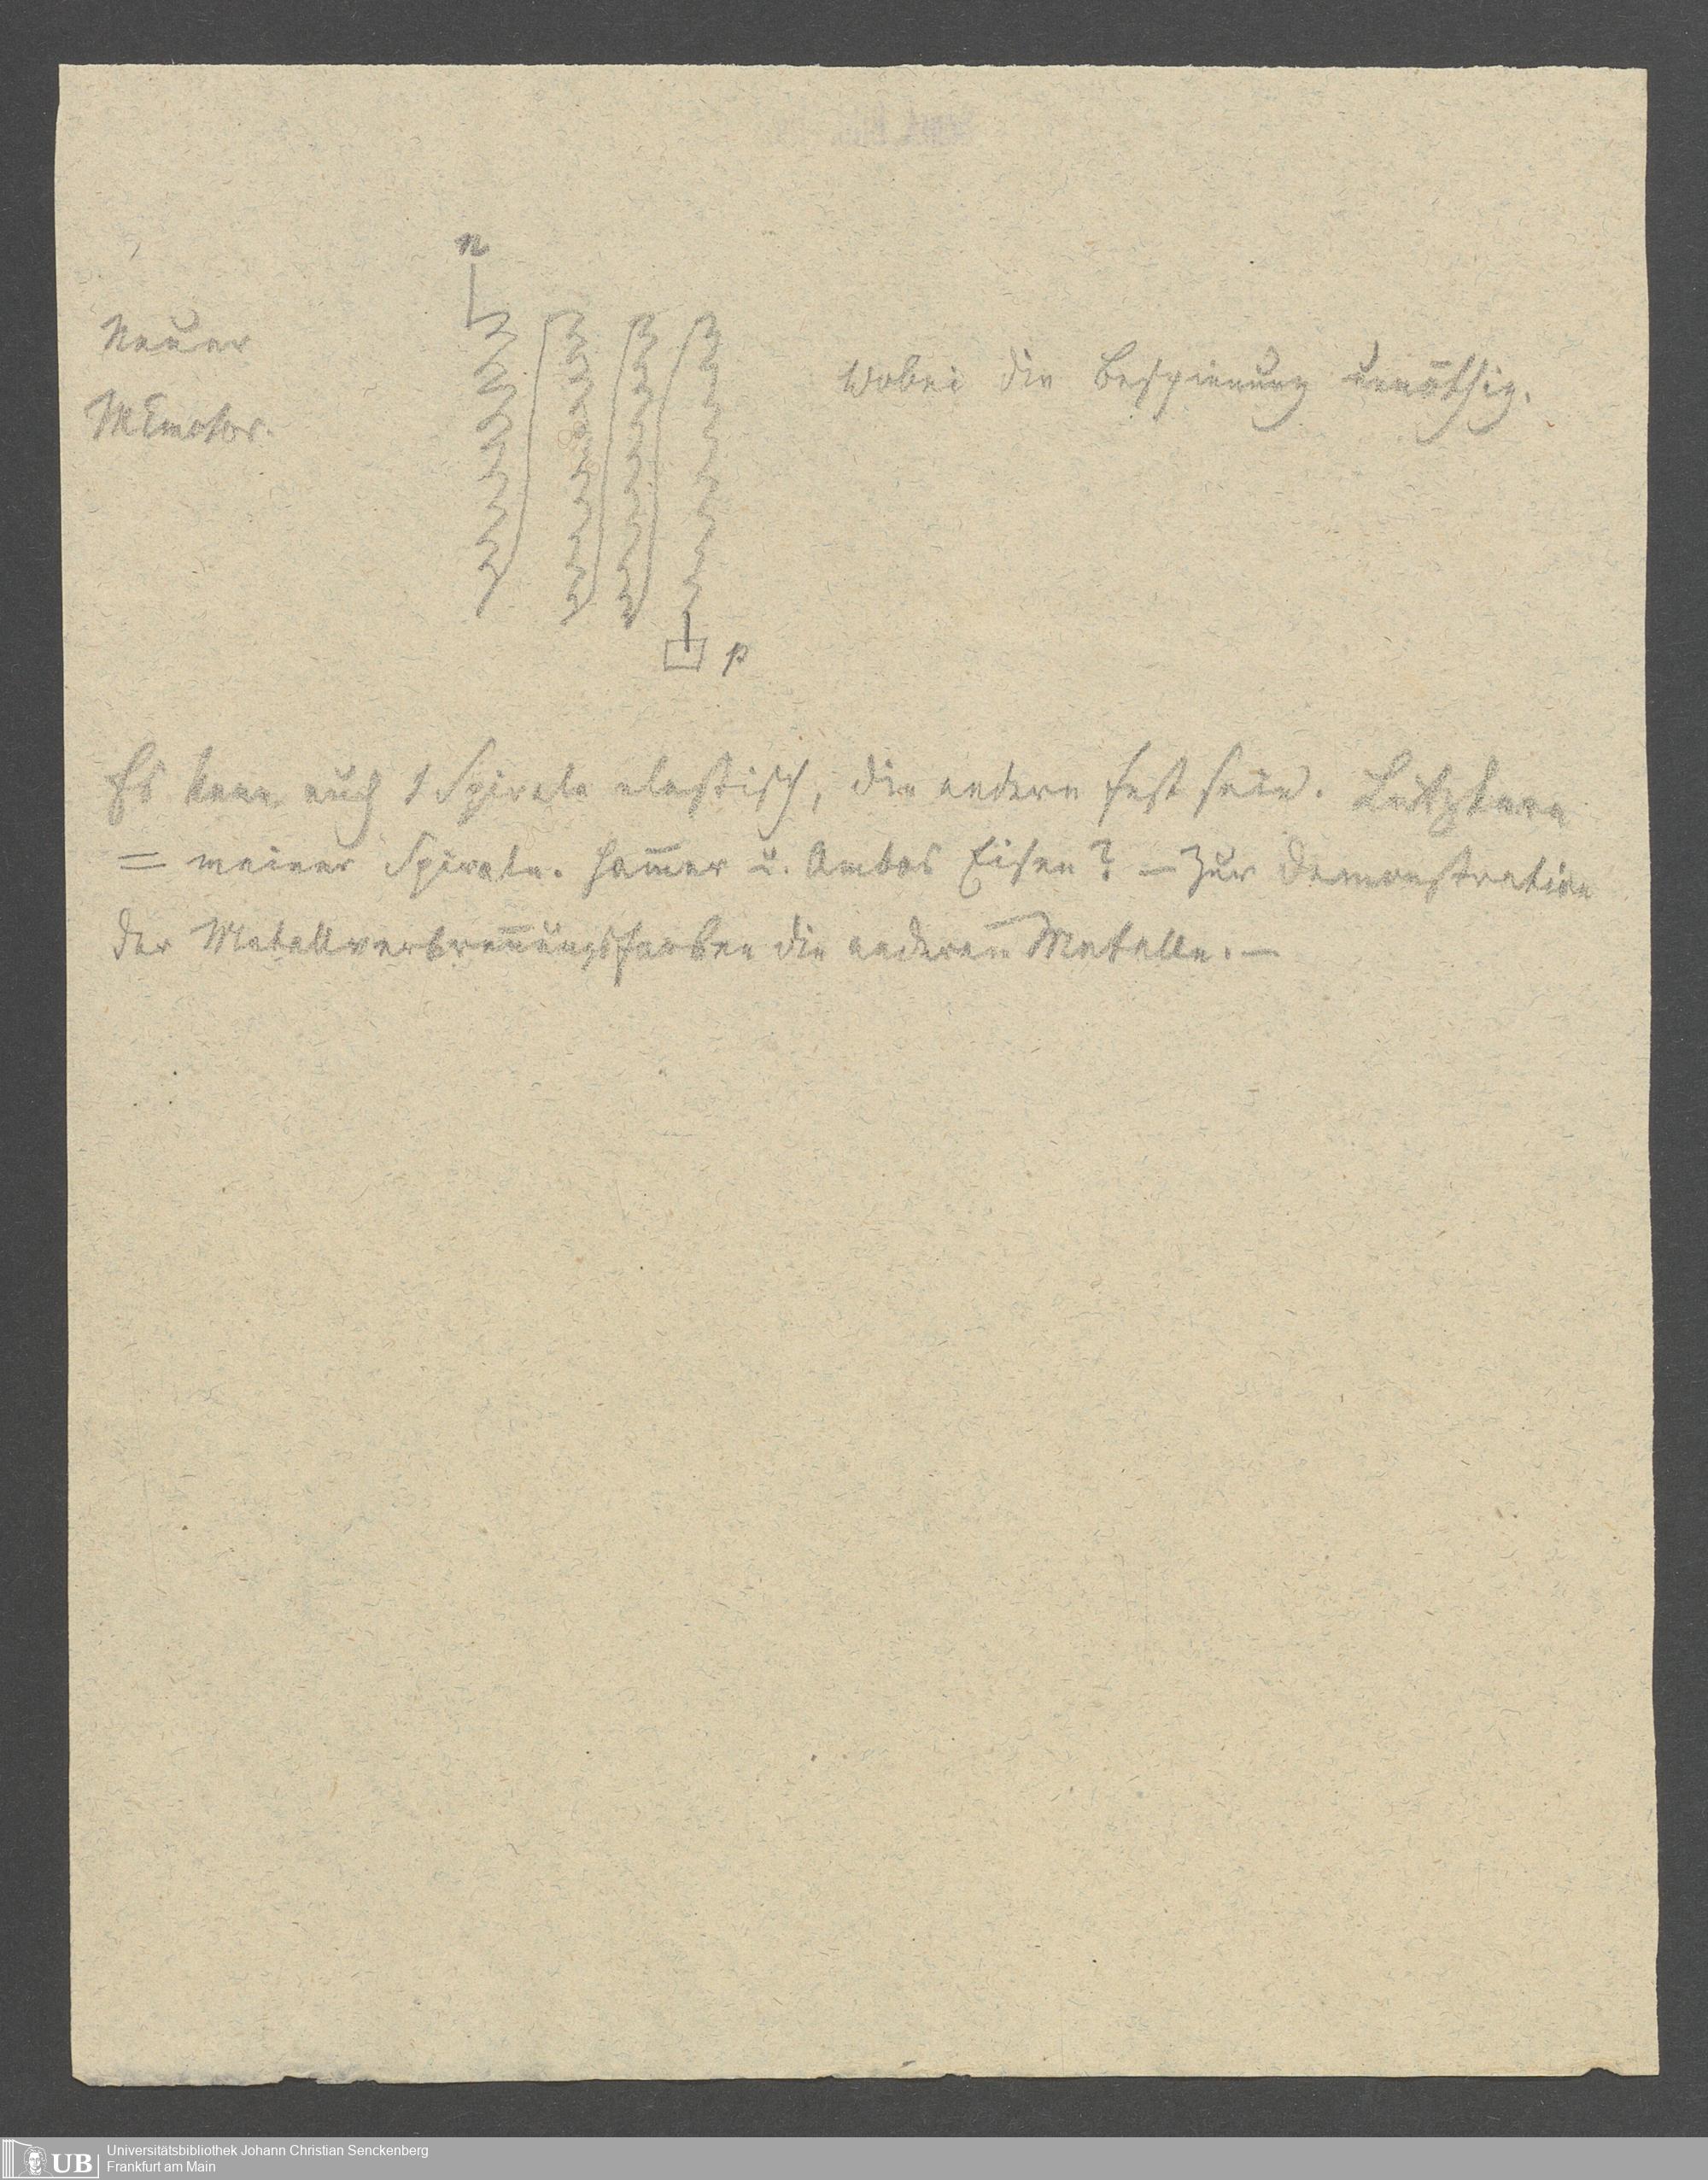 n
Neuer
MEmotor.
wobei die Bespinnung unnöthig.
p
Es kann auch 1 Spirale elastisch, die andern fest sein.
= meiner Spirale. Ham̄er u. Ambos Eisen? — Zur Demonstration
der Metallverbren̄ungsfarben die anderen Metalle. —
UB
Universitätsbibliothek Johann Christian Senckenberg
Frankfurt am Main